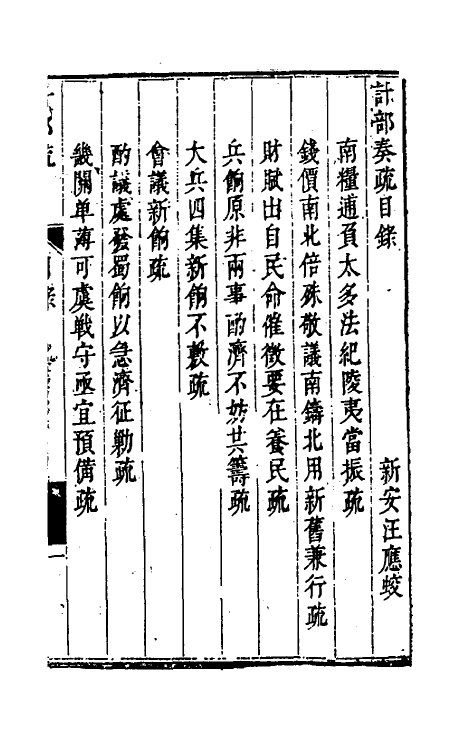 計部奏疏目錄 新安汪應蛟
南糧逋負太多法紀陵夷當振疏
錢價南北倍殊敬議南鑄北用新舊兼行疏
財賦出自民命催徵要在養民疏
兵餉原非兩事酌濟不妨共籌疏
大兵四集新餉不敷疏
會議新餉疏
酌議處發蜀餉以急濟征勦疏
畿關单薄可虞戰守亟宜預備疏